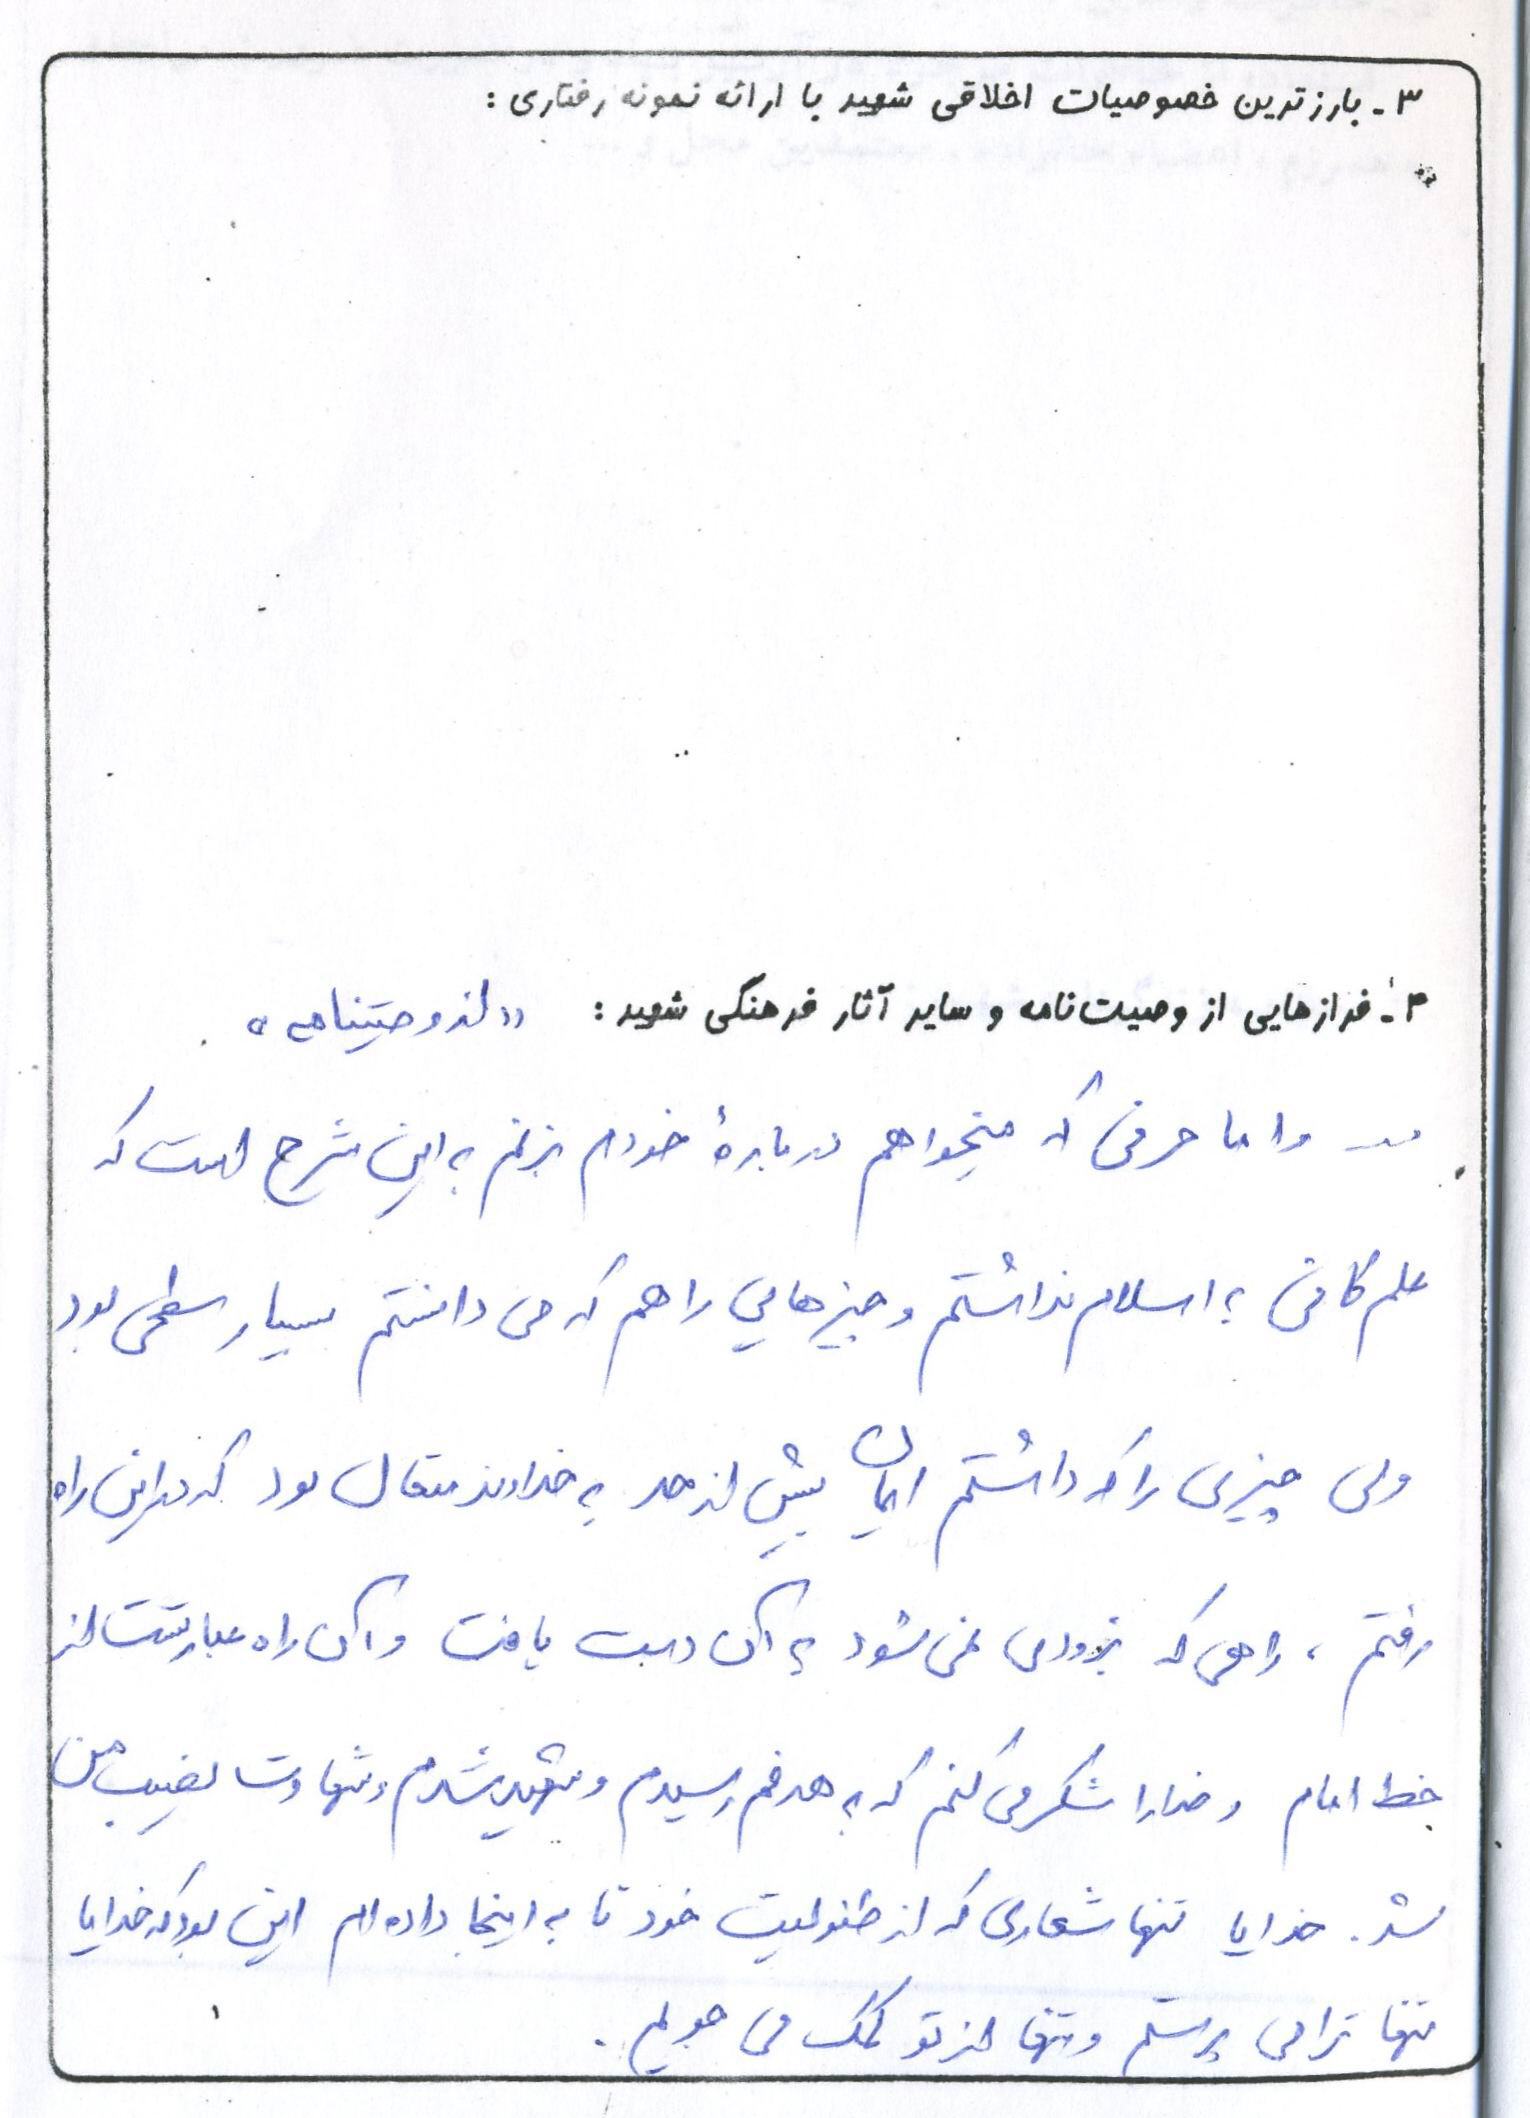 ۳- بارزترین خصوصیات اخلاقی شهید با ارائه نمونه رفتاری :
۴- فرازهایی از وصیت‌نامه و سایر آثار فرهنگی شهید : «از وصیتنامه»
... و اما حرفی که میخواهم درباره خودم بزنم به این شرح است که
علم کافی به اسلام نداشتم و چیزهایی را هم که می دانستم بسیار سطحی بود
ولی چیزی را که داشتم ایمان بیش از حد به خداوند متعال بود که در این راه
رفتم ، راهی که بزودی نمی شود به آن دست یافت و آن راه عبارتست از
خط امام و خدا را شکر می کنم که به هدفم رسیدم و شهید شدم و شهادت نصیب من
شد. خدایا تنها شعاری که از طفولیت خود تا به اینجا داده ام این بود که خدایا
تنها ترا می پرستم و تنها از تو کمک می جویم .